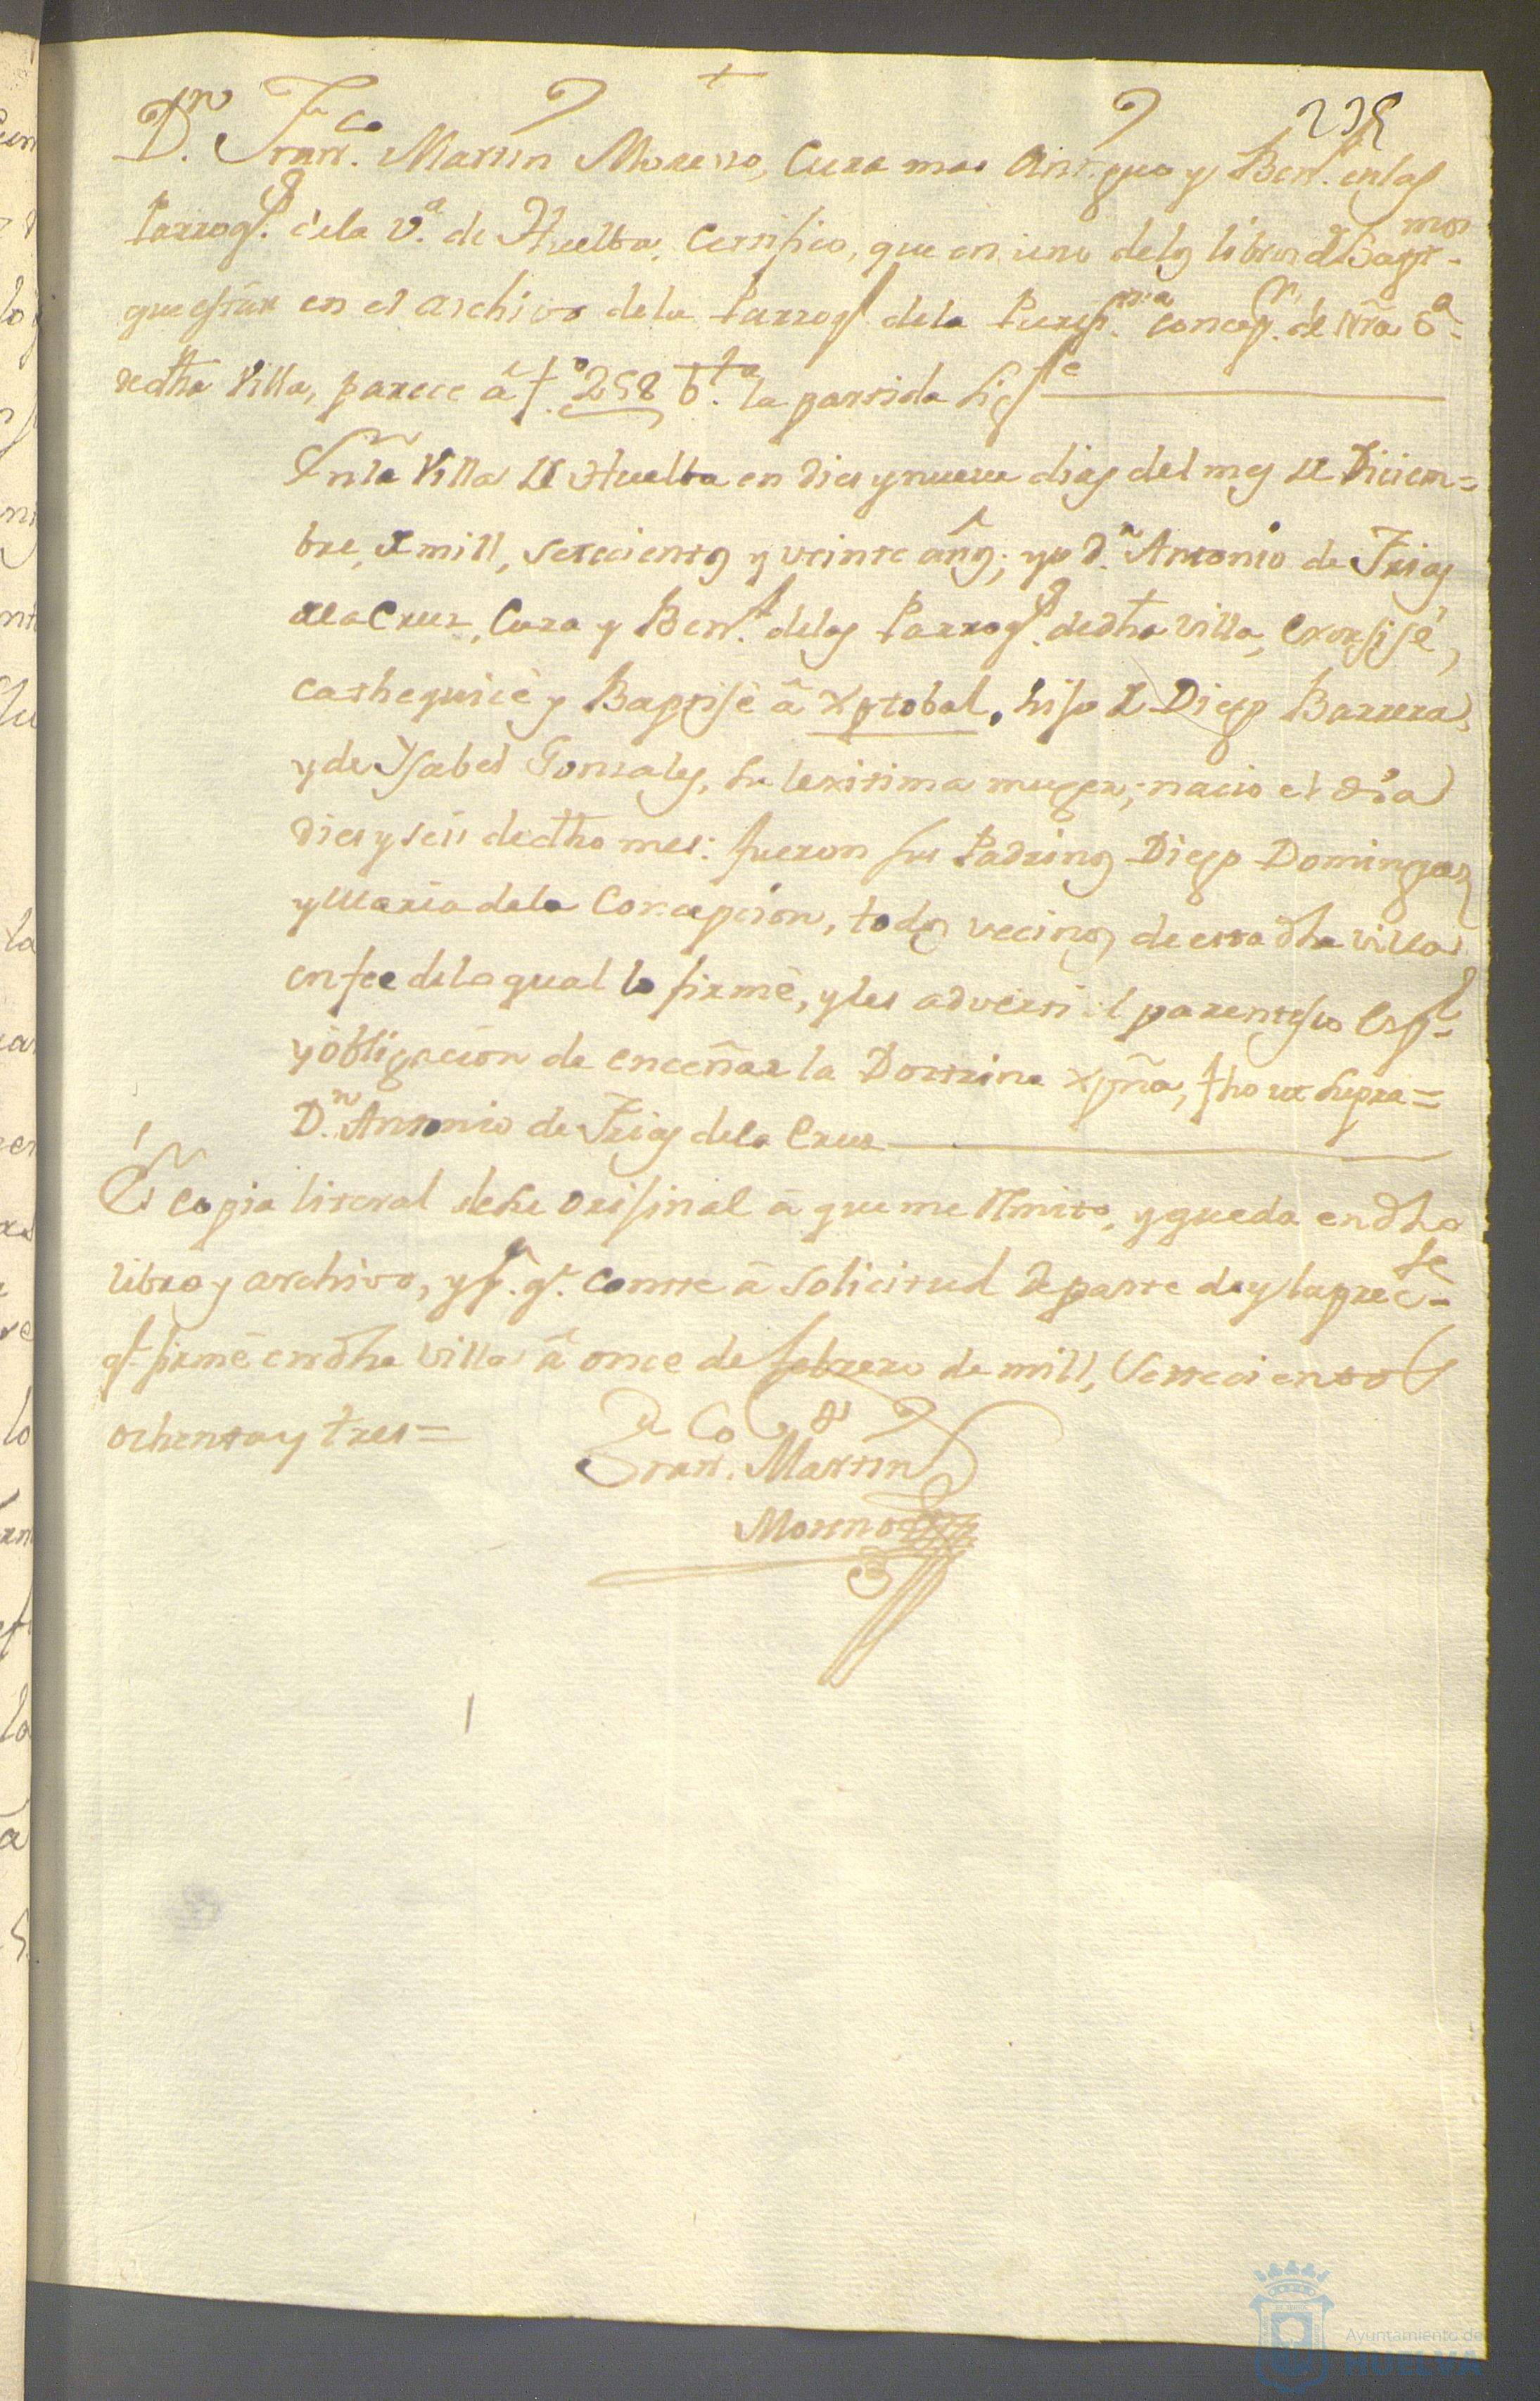 +
225
Dn. Franco. Martin Moreno, Cura mas Antiguo y Benf. en las
Parrogs. dela va. de Huelba, Certifico, que en uno delos libros de Baptmos.
que estan en el archivo dela Parrogl. dela Purisma. Concepn. de Nra Sa.
de dha Villa, parece â fo. 258 bta. la partida sigte
En la Villa de Huelba en dies y nueve dias del mes de Diciem=
bre, de mill, setecientos y veinte años; yo Dn. Antonio de Frias
dela Cruz, Cura y Benf. delas Parrogs. de dha villa, Exorsisé,
cathequicè y Baptisè â Xptobal, hijo de Diego Barrera,
y de Ysabel Gonzales, su lexitima muger; nacio el dia
dies y seis de dho mes: fueron sus Padrinos Diego Dominguez
y Maria dela Concepcion, todos vecinos de esta dha villa
en fee delo qual lo firmè, y les adverti el parentesco Espl.
y òbligacion de enceñar la Doctrina xpña, fho ut supra=
Dn. Antonio de Frias dela Cruz
Es copia literal de su orijinal â que me remito, y queda en dho
libro y archivo, y pa. qe. conste â solicitud de parte doy la preste=
qe. firmè en dha villa â once de febrero de mill, Setecientos
ochenta y tres=
Franco. Martin
Moreno
Ayuntamiento de
HUELVA